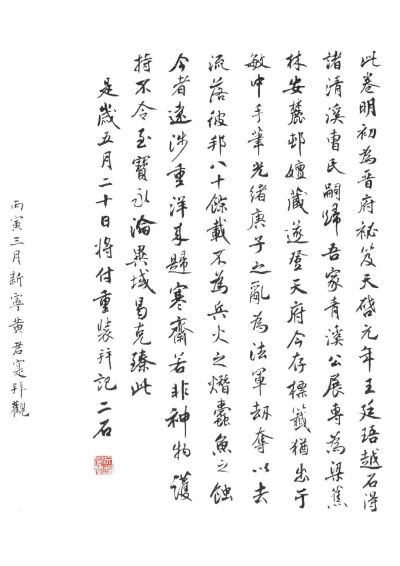 此卷明初為晉府祕笈天啓元年王廷珸越石得
諸清溪曹氏嗣歸吾家青溪公展轉為梁蕉
林安麓邨嬗藏遂登天府今存標籤猶出于
敏中手筆光緒庚子之亂為法軍刼奪以去
流落彼邦八十餘載不為兵火之熸蠹魚之蝕
今者遠涉重洋來歸寒齋若非神物護
持不令至寶永淪異域曷克臻此
是歲五月二十日將付重裝并記 二石
丙寅三月新寧黃君寔拜觀